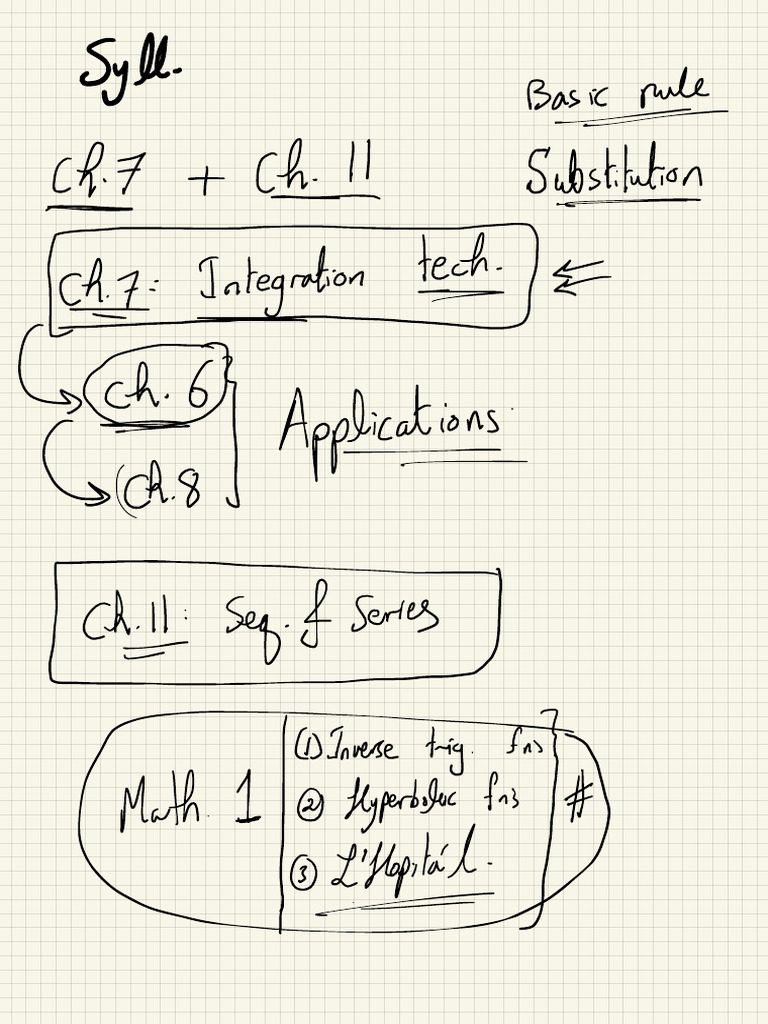 Syll.
Basic rule
Substitution
Ch.7 + Ch. 11
Ch.7: Integration tech.
Ch. 6
Applications
Ch.8
Ch.11: Seq. & Series
Math. 1
(1) Inverse trig. fns
② Hyperbolic fns
#
③ L'Hopitál.